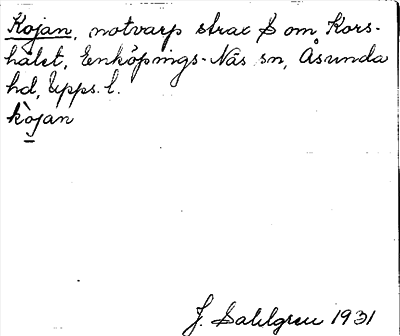 Kojan, notvarp strax S om Kors-
hålet, Enköpings-Näs sn, Åsunda
hd, Upps. l.
kòjan
J. Sahlgren 1931